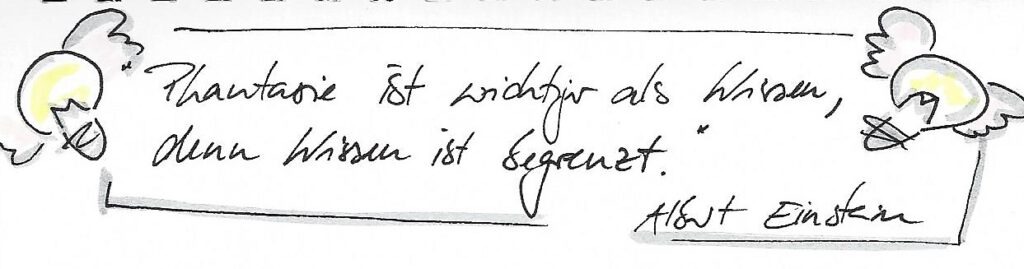 "Phantasie ist wichtiger als Wissen,
denn Wissen ist begrenzt."
Albert Einstein